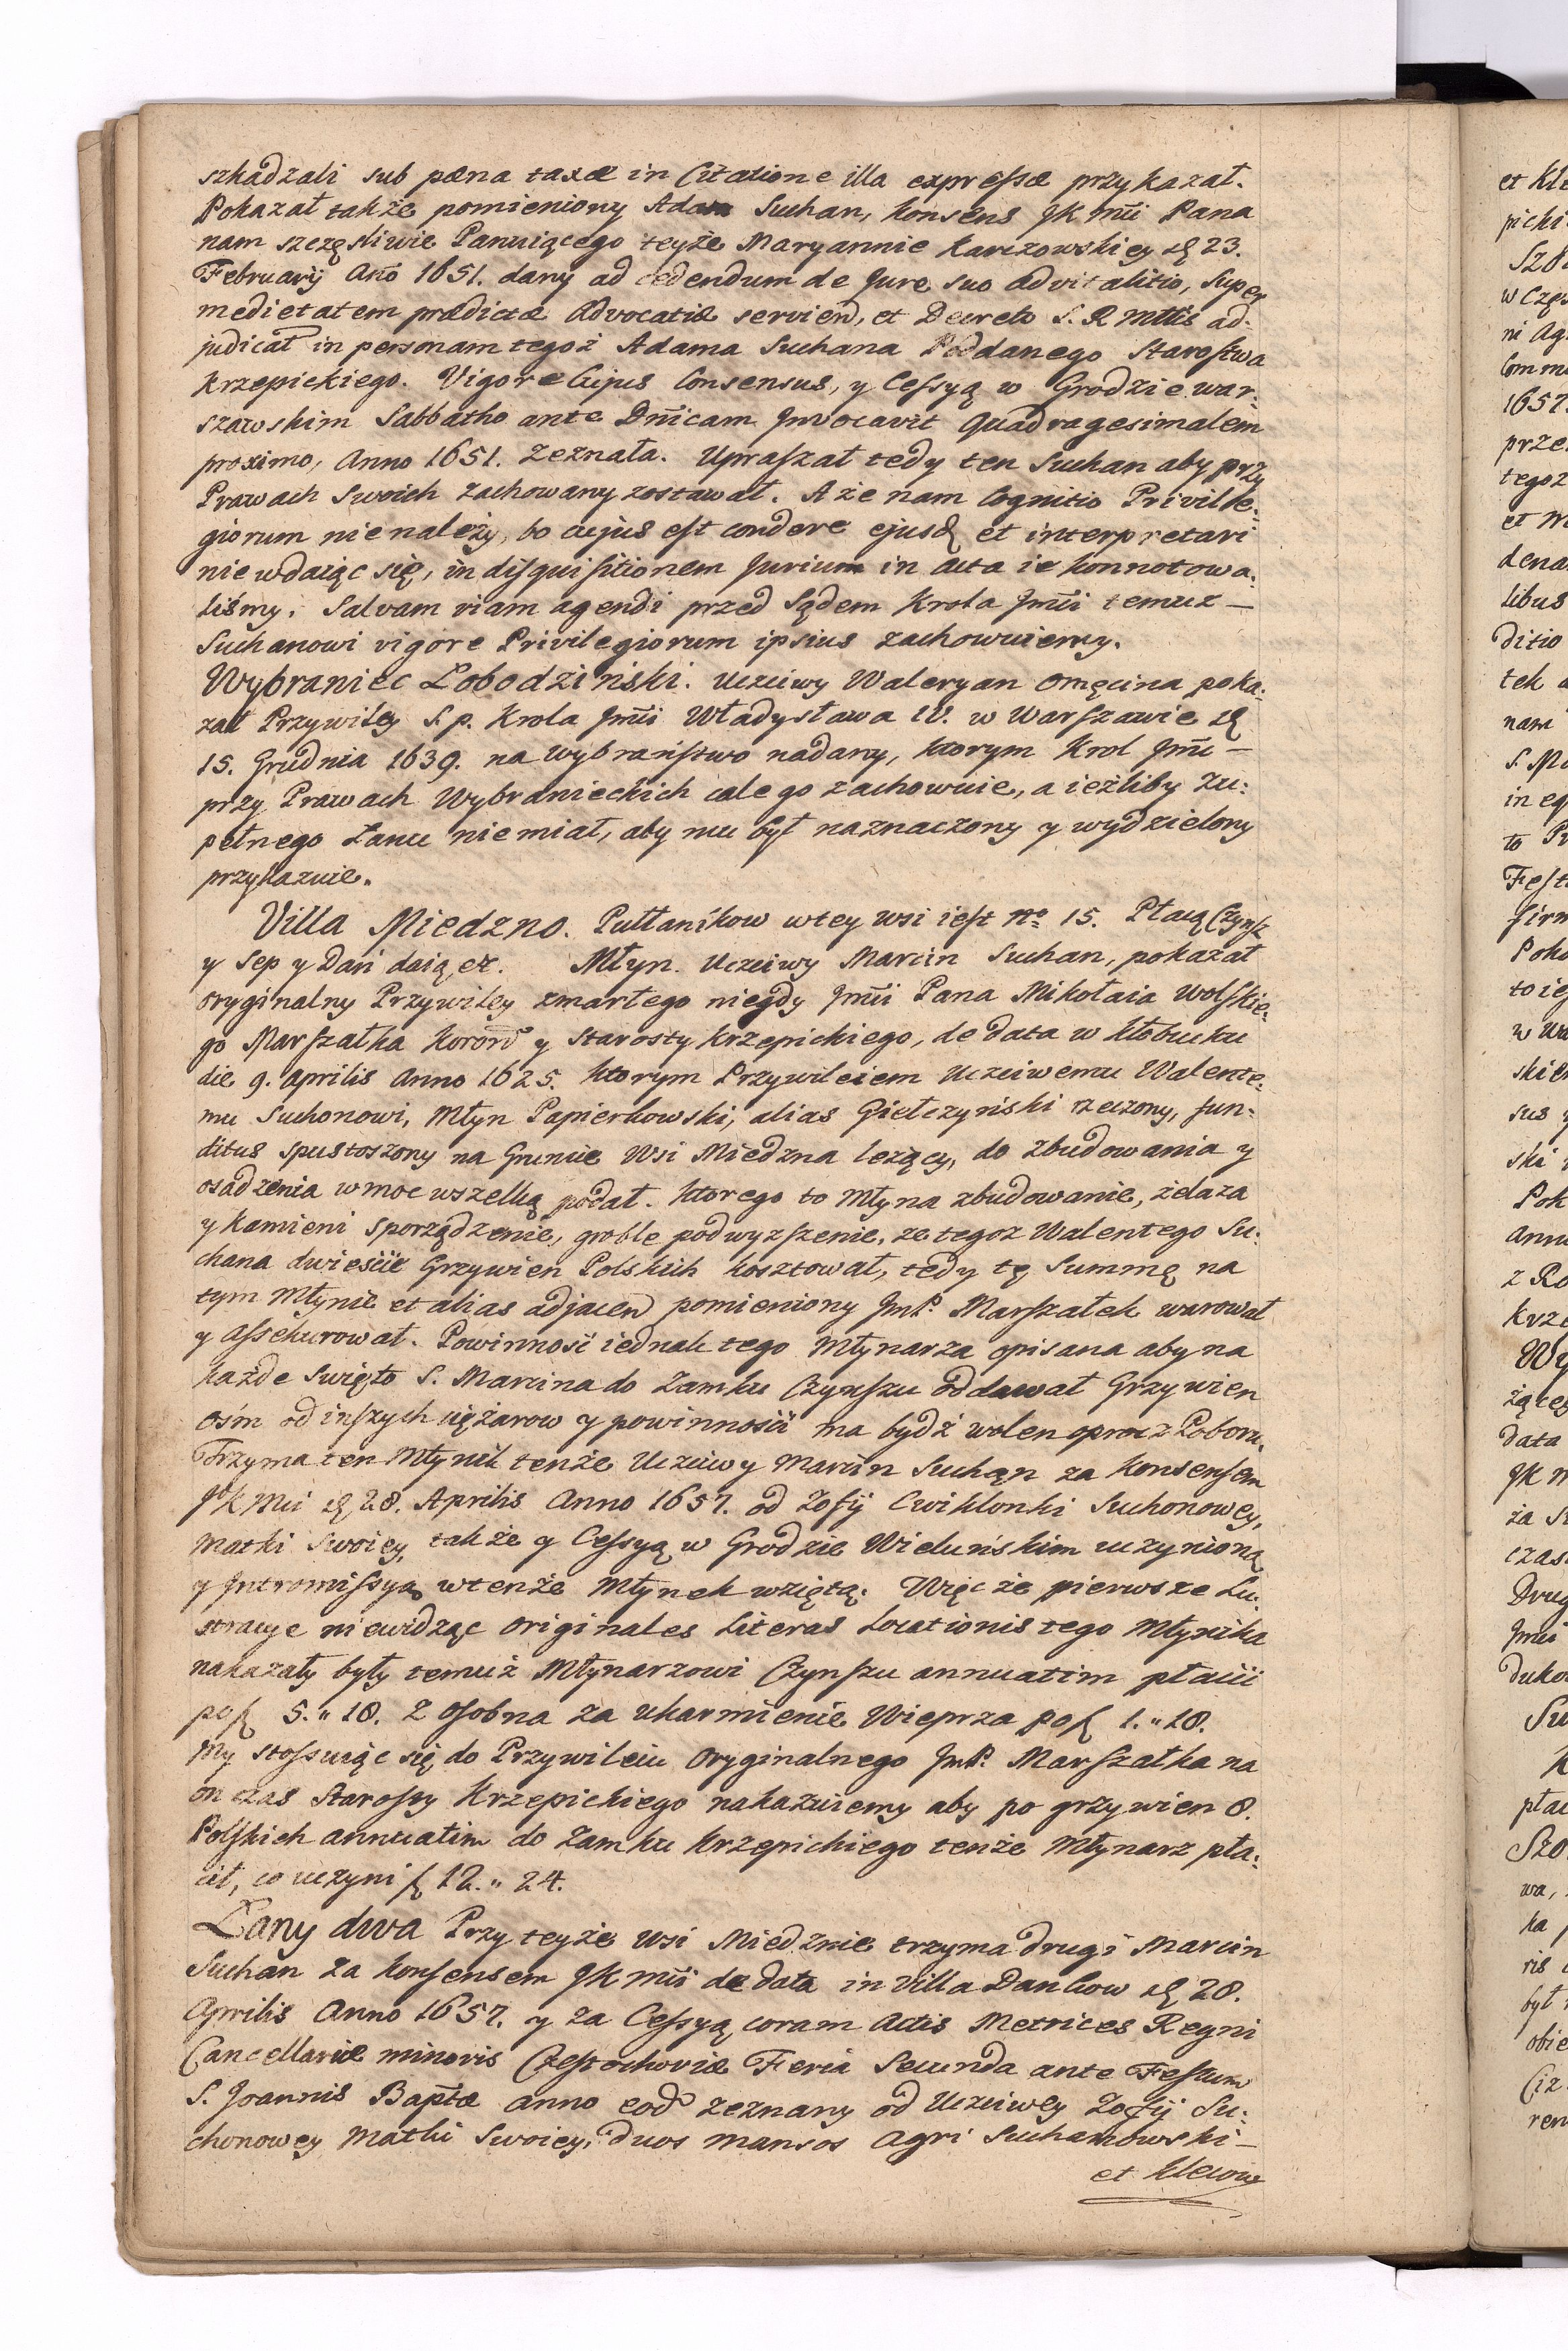 szkadzali sub pæna taxæ in Citatione illa expreſsæ przykazał.
Pokazał także pomieniony Adam Suchan, konsens JK Mći Pana
nam szczęśliwie Panuiącego teyże Maryannie Karczowskiey dą 23.
Februarij Año 1651. dany ad cedendum de Jure suo advitalitio, super
medietatem prædictæ Advocatiæ servień, et Decreto S. R Mttis ad:
judicat in personam tegoż Adama Suchana Poddanego Staroſtwa
Krzepickiego. Vigore Cujus Consensus, y Ceſsyą w Grodzie war:
szawskim Sabbatho ante Dñicam Invocavit Quadragesimalem
proximo, Anno 1651. Zeznała. Upraſzał tedy ten Suchan aby przy
Prawach Swoich zachowany zostawał. A że nam Cognitio Privile:
giorum nie należy, bo cujus eſt condere ejusd et interpretari
nie wdaiąc się, in diſquiſitionem Jurium in acta ie konnotowa:
liśmy. Salvam viam agendi przed Sądem Krola Jmći temuż —
Suchanowi vigore Privilegiorum ipsius zachowuiemy.
Wybraniec Łobodziński. Uczciwy Waleryan Omęcina poka:
zał Przywiley S. p. Krola Jmći Władysława IV. w Warſzawie dą
15. Grudnia 1639. na Wybrańſtwo nadany, ktorym Krol Jmć —
przy Prawach Wybranieckich całego zachowuie, a ieżliby zu:
pełnego Łanu nie miał, aby mu był naznaczony y wydzielony
przykazuie.
Villa Miedzno. Pułłanikow w tey wsi ieſt No 15. Płacą Czynſz
y Sep y Dań daią et. Młyn. Uczciwy Marcin Suchan, pokazał
oryginalny Przywiley zmarłego niegdy Jmći Pana Mikołaia Wolſkie:
go Marſzałka Koron y Starosty Krzepickiego, de data w Kłobucku
die 9. Aprilis Anno 1625. ktorym Przywileiem Uczciwemu Walente:
mu Suchonowi, Młyn Papierkowski, alias Giełczyński rzeczony, fun:
ditus spustoszony na Gruncie Wsi Miedzna leżący, do zbudowania y
osadzenia w moc wszelką podał. Ktorego to Młyna zbudowanie, żelaza
y Kamieni sporządzenie, groble podwyzſzenie, że tegoz Walentego Su:
chana dwieście Grzywien Polskich kosztował, tedy tę Summę na
tym Młynie et alias adjaceñ pomieniony JmP. Marſzałek warował
y aſsekurował. Powinność iednak tego Młynarza opisana aby na
każde Swięto S. Marcina do Zamku Czynſzu oddawał Grzywien
ośm od inſzych ciężarow y powinności ma bydź wolen oprocz Poboru.
Trzyma ten Młynik tenże Uczciwy Marcin Suchan za konsenſem
JK Mći dą 28. Aprilis Anno 1657. od Zofij Cwiklonki Suchonowey,
Matki Swoiey, także y Ceſsyą w Grodzie Wieluńskim uczynioną
y Intromiſsyą w tenże Młynek wziętą. Więc że pierwsze Lu:
stracye niewidząc originales Literas Locationis tego Młynika
nakazały były temuż Młynarzowi Czynſzu annuatim płacić
po f 5. " 18. Z oſobna za ukarmienie Wieprza po f 1. " 18.
My stoſsuiąc się do Przywileiu Oryginalnego JmP. Marſzałka na
on czas Staroſty Krzepickiego nakazuiemy aby po grzywien 8.
Polſkich annuatim do Zamku Krzepickiego tenże Młynarz pła:
cił, co uczyni f 12. " 24.
Łany dwa Przy teyże Wsi Miedznie trzyma drugi Marcin
Suchan za konſensem JK Mći de data in Villa Dankow dą 28.
Aprilis Anno 1657. y za Ceſsyą coram Actis Metrices Regni
Cancellariæ minoris Czeſtochoviæ Feria Secunda ante Feſtum
S. Joannis Baptæ anno eod zeznany od Uczciwey Zofij Su:
chonowey Matki Swoiey, duos mansos Agri Suchanowski —
et Klecow